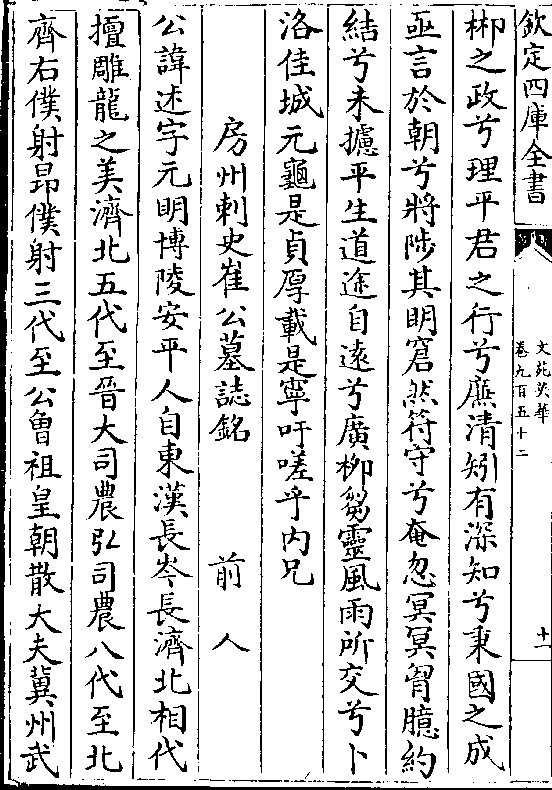 欽定四庫全書
文苑英華
卷九百五十二
十一
郴之政兮理平君之行兮廉清矧有深知兮秉國之成
亟言於朝兮將陟其眀窘然符守兮奄忽冥冥胷臆約
結兮未攄平生道途自遠兮廣柳芻靈風雨所交兮卜
洛佳城元龜是貞厚載是寧吁嗟乎内兄
房州刺史崔公墓誌銘 前人
公諱述字元眀博陵安平人自東漢長岑長濟北相代
擅雕龍之美濟北五代至晉大司農弘司農八代至北
齊右僕射昂僕射三代至公曾祖皇朝散大夫冀州武